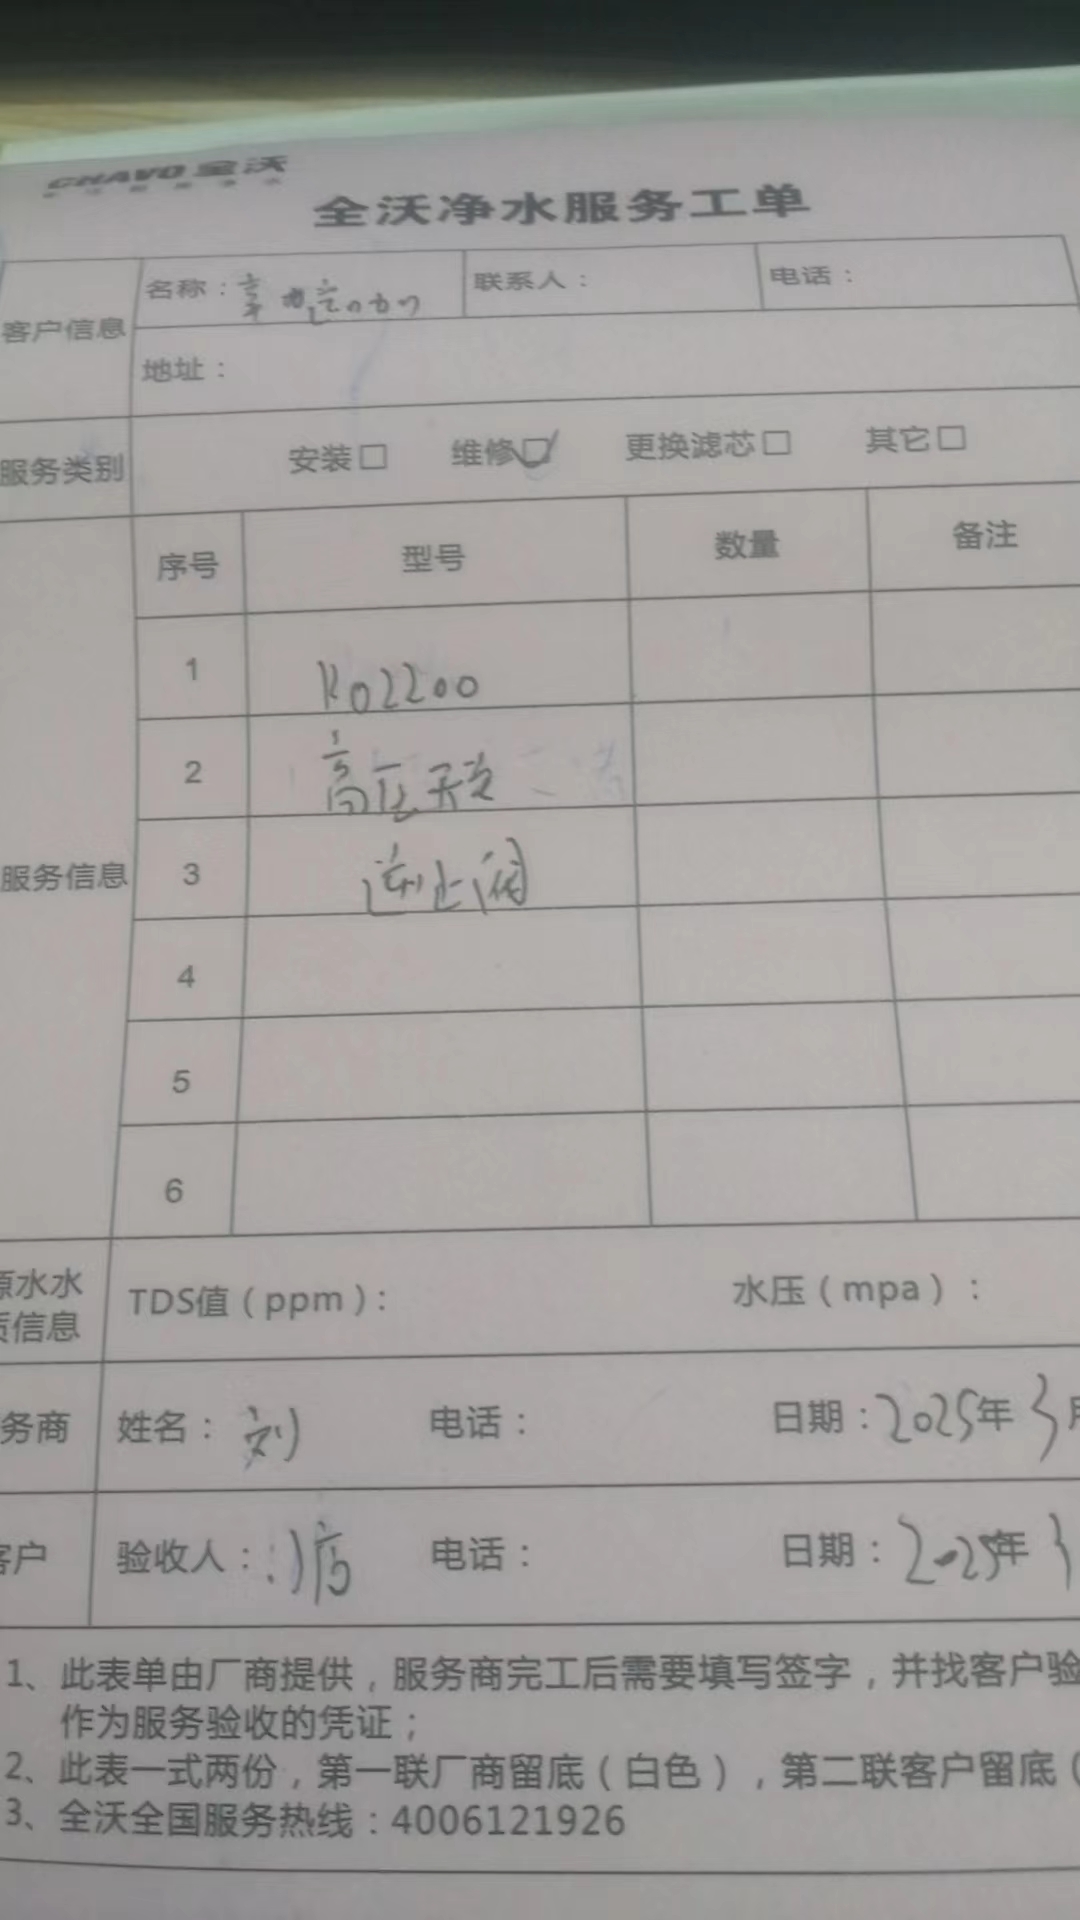 CHAVO 全沃
全沃净水服务工单
客户信息 名称： 联系人： 电话：
地址：
服务类别 安装□ 维修☑ 更换滤芯□ 其它□
序号 型号 数量 备注
1 RO2200
2 高压开关
服务信息 3 逆止阀
4
5
6
源水水 TDS值（ppm）： 水压（mpa）：
质信息
务商 姓名：刘 电话： 日期：2025年3月
客户 验收人： 电话： 日期：2025年3
1、此表单由厂商提供，服务商完工后需要填写签字，并找客户验
作为服务验收的凭证；
2、此表一式两份，第一联厂商留底（白色），第二联客户留底（
3、全沃全国服务热线：4006121926